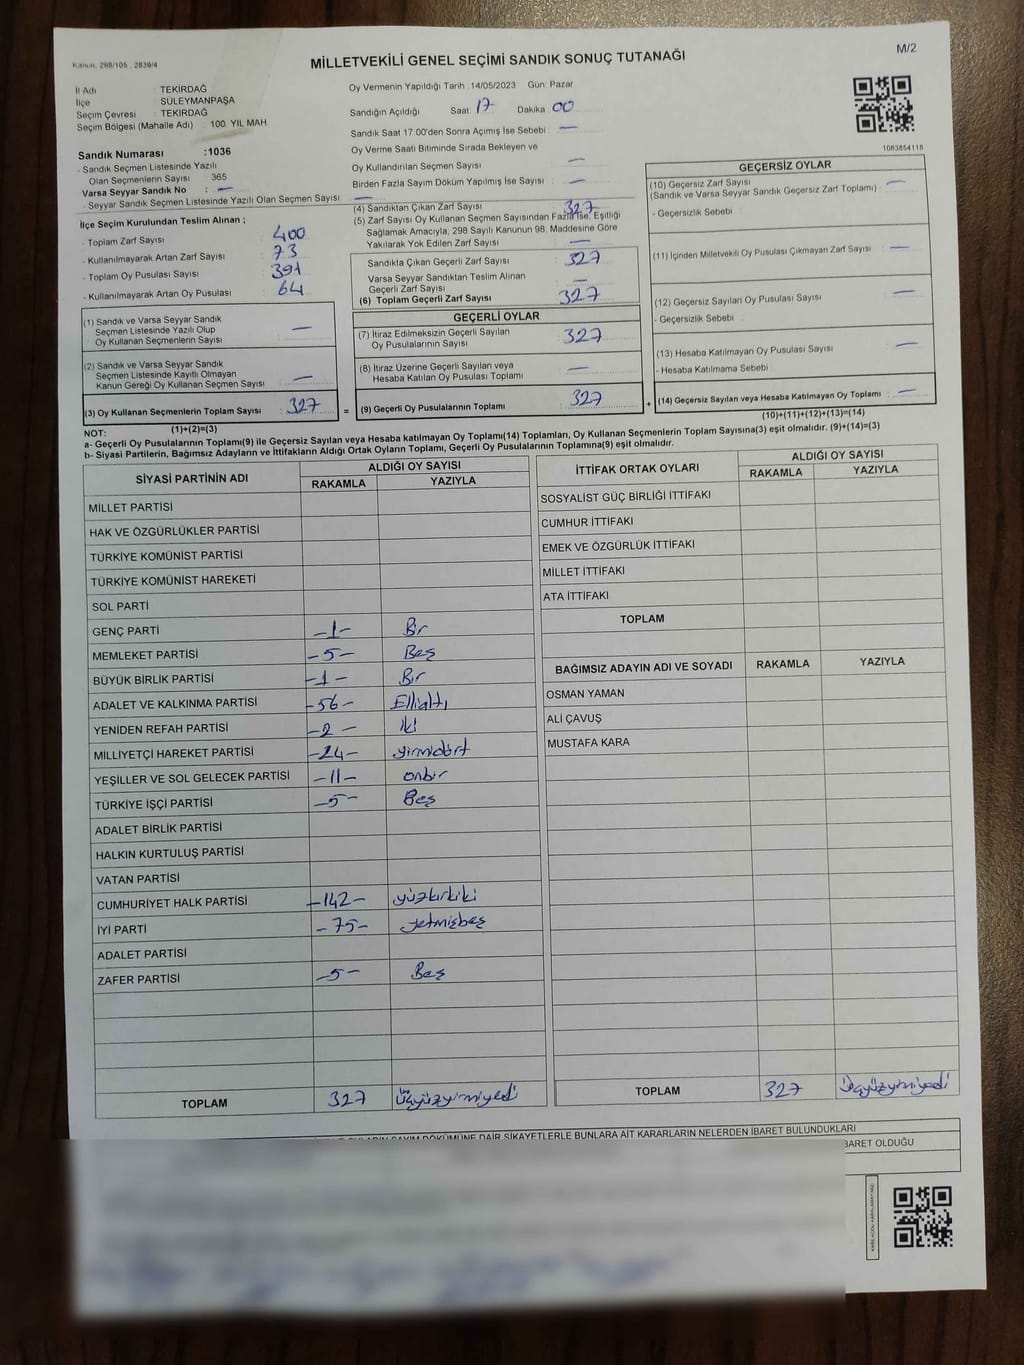 Kanun, 298/105 , 2839/4
MİLLETVEKİLİ GENEL SEÇİMİ SANDIK SONUÇ TUTANAĞI
M/2
İl Adı : TEKİRDAĞ
İlçe : SÜLEYMANPAŞA
Seçim Çevresi : TEKİRDAĞ
Seçim Bölgesi (Mahalle Adı) : 100. YIL MAH.
Sandık Numarası :1036
- Sandık Seçmen Listesinde Yazılı
Olan Seçmenlerin Sayısı : 365
Varsa Seyyar Sandık No : —
- Seyyar Sandık Seçmen Listesinde Yazılı Olan Seçmen Sayısı: —
İlçe Seçim Kurulundan Teslim Alınan ;
- Toplam Zarf Sayısı : 400
- Kullanılmayarak Artan Zarf Sayısı : 73
- Toplam Oy Pusulası Sayısı : 391
- Kullanılmayarak Artan Oy Pusulası : 64
(1) Sandık ve Varsa Seyyar Sandık
Seçmen Listesinde Yazılı Olup
Oy Kullanan Seçmenlerin Sayısı : —
(2) Sandık ve Varsa Seyyar Sandık
Seçmen Listesinde Kayıtlı Olmayan
Kanun Gereği Oy Kullanan Seçmen Sayısı : —
(3) Oy Kullanan Seçmenlerin Toplam Sayısı : 327
(1)+(2)=(3)
Oy Vermenin Yapıldığı Tarih : 14/05/2023 Gün: Pazar
Sandığın Açıldığı Saat 17 Dakika 00
Sandık Saat 17:00'den Sonra Açımış İse Sebebi : —
Oy Verme Saati Bitiminde Sırada Bekleyen ve
Oy Kullandırılan Seçmen Sayısı : —
Birden Fazla Sayım Döküm Yapılmış İse Sayısı : —
(4) Sandıktan Çıkan Zarf Sayısı : 327
(5) Zarf Sayısı Oy Kullanan Seçmen Sayısından Fazla İse, Eşitliği
Sağlamak Amacıyla, 298 Sayılı Kanunun 98. Maddesine Göre
Yakılarak Yok Edilen Zarf Sayısı : —
Sandıkla Çıkan Geçerli Zarf Sayısı : 327
Varsa Seyyar Sandıktan Teslim Alınan
Geçerli Zarf Sayısı : —
(6) Toplam Geçerli Zarf Sayısı : 327
GEÇERLİ OYLAR
(7) İtiraz Edilmeksizin Geçerli Sayılan
Oy Pusulalarının Sayısı : 327
(8) İtiraz Üzerine Geçerli Sayılan veya
Hesaba Katılan Oy Pusulası Toplamı : —
= (9) Geçerli Oy Pusulalarının Toplamı : 327 +
1083854118
GEÇERSİZ OYLAR
(10) Geçersiz Zarf Sayısı
(Sandık ve Varsa Seyyar Sandık Geçersiz Zarf Toplamı) : —
- Geçersizlik Sebebi :
(11) İçinden Milletvekili Oy Pusulası Çıkmayan Zarf Sayısı : —
(12) Geçersiz Sayılan Oy Pusulası Sayısı : —
- Geçersizlik Sebebi :
(13) Hesaba Katılmayan Oy Pusulası Sayısı : —
- Hesaba Katılmama Sebebi :
(14) Geçersiz Sayılan veya Hesaba Katılmayan Oy Toplamı : —
(10)+(11)+(12)+(13)=(14)
NOT:
a- Geçerli Oy Pusulalarının Toplamı(9) ile Geçersiz Sayılan veya Hesaba katılmayan Oy Toplamı(14) Toplamları, Oy Kullanan Seçmenlerin Toplam Sayısına(3) eşit olmalıdır. (9)+(14)=(3)
b- Siyasi Partilerin, Bağımsız Adayların ve İttifakların Aldığı Ortak Oyların Toplamı, Geçerli Oy Pusulalarının Toplamına(9) eşit olmalıdır.
SİYASİ PARTİNİN ADI ALDIĞI OY SAYISI
RAKAMLA YAZIYLA
MİLLET PARTİSİ
HAK VE ÖZGÜRLÜKLER PARTİSİ
TÜRKİYE KOMÜNİST PARTİSİ
TÜRKİYE KOMÜNİST HAREKETİ
SOL PARTİ
GENÇ PARTİ -1- Bir
MEMLEKET PARTİSİ -5- Beş
BÜYÜK BİRLİK PARTİSİ -1- Bir
ADALET VE KALKINMA PARTİSİ -56- Ellialtı
YENİDEN REFAH PARTİSİ -2- İki
MİLLİYETÇİ HAREKET PARTİSİ -24- yirmidört
YEŞİLLER VE SOL GELECEK PARTİSİ -11- onbir
TÜRKİYE İŞÇİ PARTİSİ -5- Beş
ADALET BİRLİK PARTİSİ
HALKIN KURTULUŞ PARTİSİ
VATAN PARTİSİ
CUMHURİYET HALK PARTİSİ -142- yüzkırkiki
İYİ PARTİ -75- yetmişbeş
ADALET PARTİSİ
ZAFER PARTİSİ -5- Beş
TOPLAM 327 Üçyüzyirmiyedi
İTTİFAK ORTAK OYLARI ALDIĞI OY SAYISI
RAKAMLA YAZIYLA
SOSYALİST GÜÇ BİRLİĞİ İTTİFAKI
CUMHUR İTTİFAKI
EMEK VE ÖZGÜRLÜK İTTİFAKI
MİLLET İTTİFAKI
ATA İTTİFAKI
TOPLAM
BAĞIMSIZ ADAYIN ADI VE SOYADI RAKAMLA YAZIYLA
OSMAN YAMAN
ALİ ÇAVUŞ
MUSTAFA KARA
TOPLAM 327 Üçyüzyirmiyedi
DÖKÜMÜNE DAİR ŞİKAYETLERLE BUNLARA AİT KARARLARIN NELERDEN İBARET BULUNDUKLARI
İBARET OLDUĞU